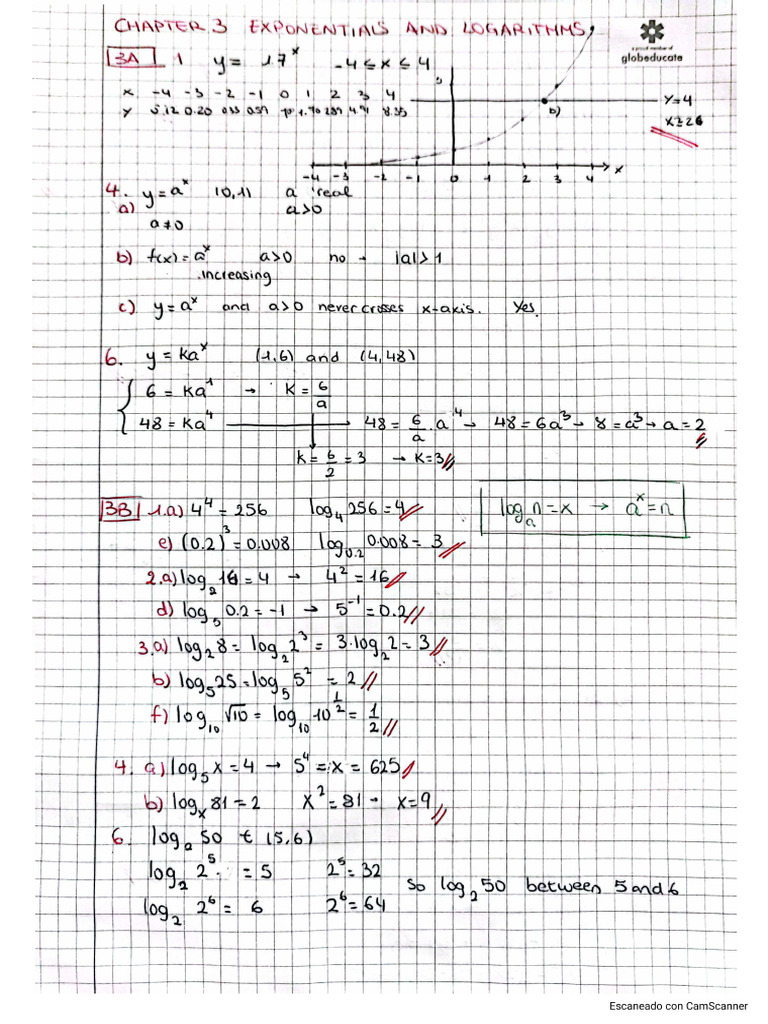 CHAPTER 3 EXPONENTIALS AND LOGARITHMS
a proud member of
globeducate
3A 1 y = 1.7^x -4 ≤ x ≤ 4
x -4 -3 -2 -1 0 1 2 3 4
y 0.20 0.59 1.70 8.35
5
y=4
b)
x≥2.6
-4 -3 -2 -1 0 1 2 3 4 x
4. y=a^x (0,1) a real
a) a>0
a≠0
b) f(x)=a^x a>0 no → |a|>1
increasing
c) y=a^x and a>0 never crosses x-axis. Yes.
6. y=ka^x (1,6) and (4,48)
6 = ka^1 → k = 6/a
48 = ka^4 → 48 = 6/a · a^4 → 48 = 6a^3 → 8 = a^3 → a = 2
k = 6/2 = 3 → k=3
3B 1.a) 4^4 = 256 log_4 256 = 4 log_a n = x → a^x = n
e) (0.2)^3 = 0.008 log_0.2 0.008 = 3
2.a) log_2 16 = 4 → 4^2 = 16
d) log_5 0.2 = -1 → 5^-1 = 0.2
3.a) log_2 8 = log_2 2^3 = 3·log_2 2 = 3
b) log_5 25 = log_5 5^2 = 2
f) log_10 √10 = log_10 10^1/2 = 1/2
4. a) log_5 x = 4 → 5^4 = x = 625
b) log_x 81 = 2 x^2 = 81 → x = 9
6. log_a 50 ∈ (5,6)
log_2 2^5 = 5 2^5 = 32
so log_2 50 between 5 and 6
log_2 2^6 = 6 2^6 = 64
Escaneado con CamScanner